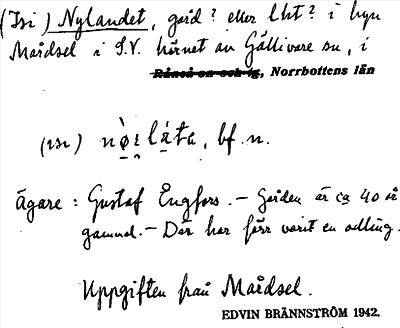 (Isi) Nylandet, gård? eller lht? i byn
Mårdsel i S.V. hörnet av Gällivare sn, i
Råneå sn och tg, Norrbottens län
(ısı)
bf. n.
Ägare: Gustaf Engfors. – Gården är ca 40 år
gammal. – Där har förr varit en odling.
Uppgiften från Mårdsel.
EDVIN BRÄNNSTRÖM 1942.